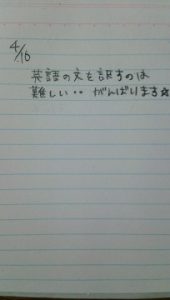 4/16
英語の文を訳すのは
難しい‥ がんばります☆